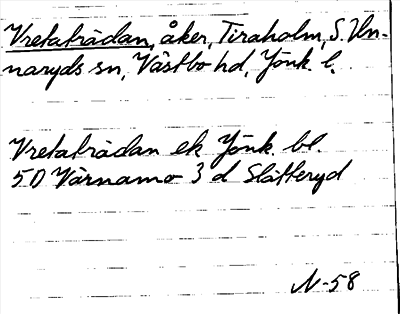 Vretaträdan, åker, Tiraholm, S. Un-
naryds sn, Västbo hd, Jönk. l.
Vretaträdan ek Jönk. bl.
5D Värnamo 3 d Slätteryd
N-58